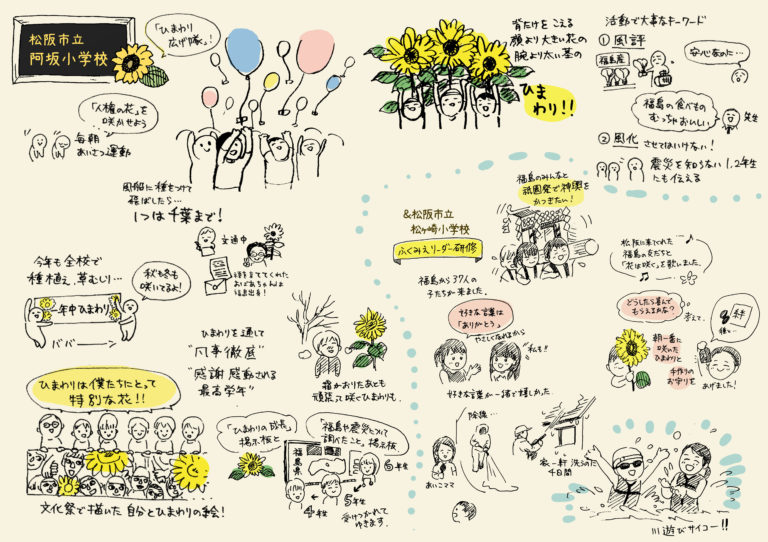 松阪市立
阿坂小学校
「ひまわり
広げ隊」!
「人権の花」を
咲かせよう
毎朝
あいさつ運動
風船に種をつけて
飛ばしたら…
1つは千葉まで!
文通中
種を育ててくれた
おばあちゃんは
福島出身!
背たけをこえる
顔より大きい花の
腕より太い茎の
ひま
わり!!
活動で大事なキーワード
①風評
福島産
安心なの…
福島の食べもの
むっちゃおいしい
先生
②風化 させてはいけない!
震災を知らない1,2年生
にも伝える
今年も全校で
種植え、草むしり…
秋も冬も
咲いてるよ!
一年中ひまわり
ババーー
ひまわりは僕たちにとって
特別な花!!
文化祭で描いた自分とひまわりの絵!
ひまわりを通して
"凡事徹底"
"感謝 感動される
最高学年"
霜がおりたあとも
頑張って咲くひまわりも。
「ひまわりの成長」
掲示板と
「福島や震災について
調べたこと」掲示板
福島県
6年生
5年生
4年生
受けつがれて
ゆきます。
&松阪市立
松ヶ崎小学校
ふくみえリーダー研修
福島のみんなと
祇園祭で神輿を
かつぎたい!
福島から37人の
子たちが来ました。
好きな言葉は
「ありがとう」
やさしくなれるから
私も!!
好きな言葉が一緒で嬉しかった。
松阪に来てくれた
福島の友だちと
「花は咲く」を歌いました。
どうしたら喜んで
もらえるかな?
考えて、
朝一番に
咲いたひまわりと
手作りの
お守りを
あげました!
絆
後ろ…
除染…
あいこママ
一軒 洗うのに
十日間
川遊びサイコー!!